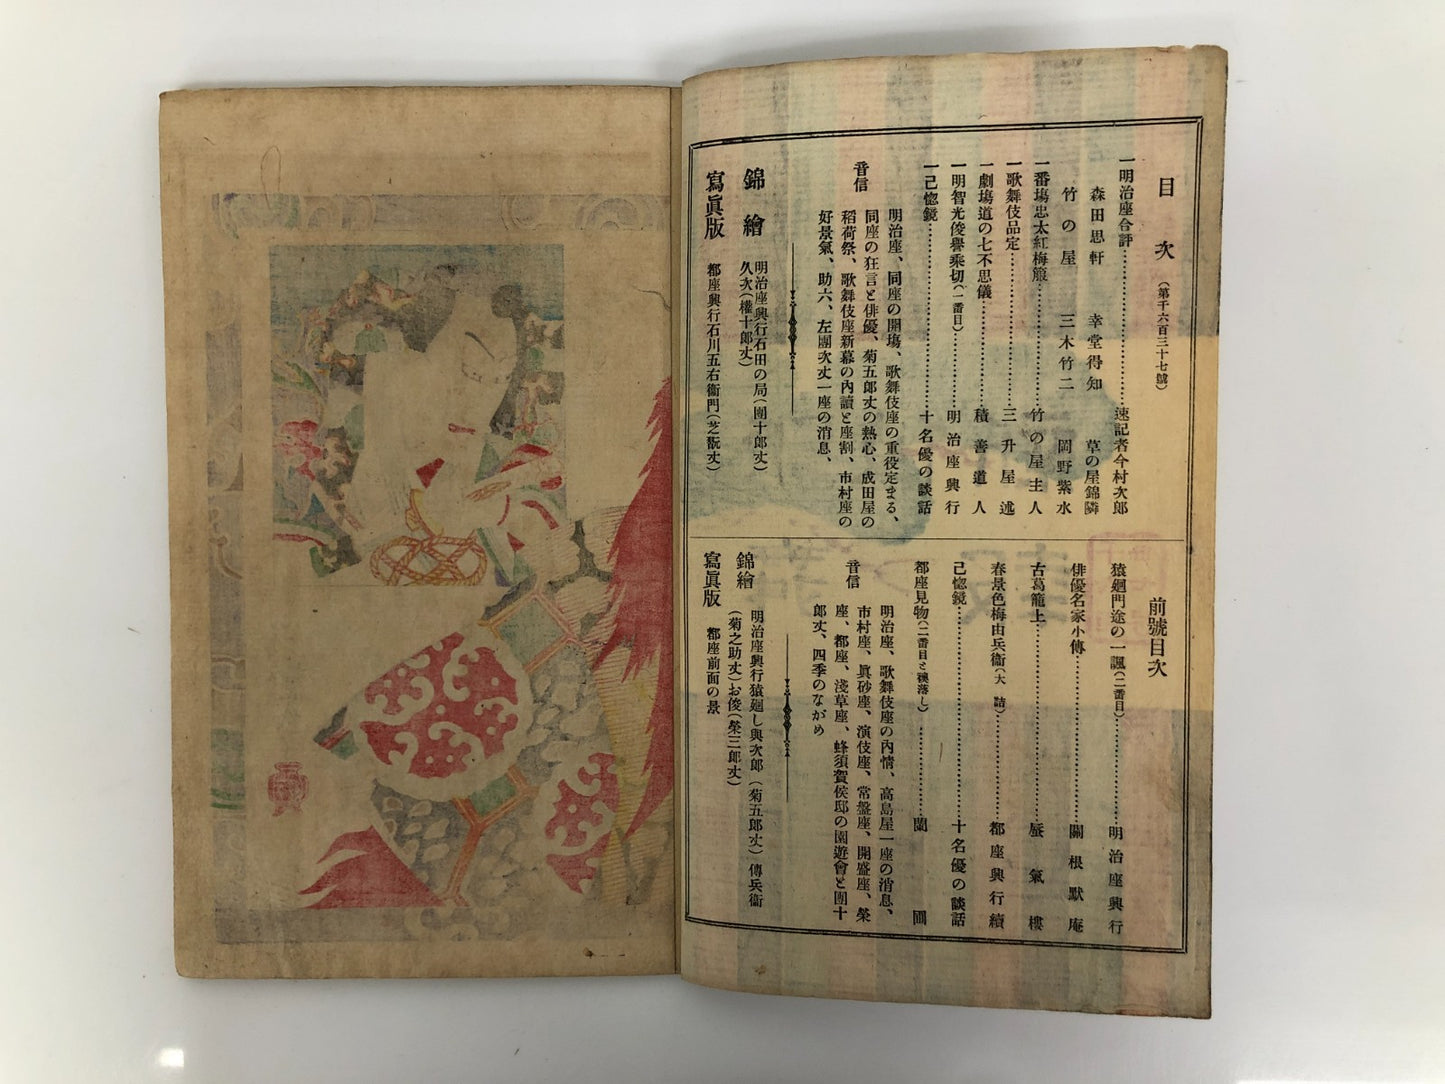 目次(第千六百三十七號)
一明治座合評……速記者今村次郎
森田思軒 幸堂得知 草の屋錦隣
竹の屋 三木竹二 岡野紫水
一番塲忠太紅梅箙……竹の屋主人
一歌舞伎品定……三升屋述
一劇塲道の七不思儀……積善道人
一明智光俊譽乘切(一番目)……明治座興行
一己惚鏡……十名優の談話
音信
明治座、同座の開塲、歌舞伎座の重役定まる、
同座の狂言と俳優、菊五郎丈の熱心、成田屋の
稻荷祭、歌舞伎座新幕の內讀と座割、市村座の
好景氣、助六、左團次丈一座の消息、
錦繪
明治座興行石田の局(團十郎丈)
久次(權十郎丈)
寫眞版 都座興行石川五右衞門(芝翫丈)
前號目次
猿廻門途の一諷(二番目)……明治座興行
俳優名家小傳……關根默庵
古葛籠上……蜃氣樓
春景色梅由兵衞(大詰)……都座興行續
己惚鏡……十名優の談話
都座見物(二番目と穗落し)……蘭圃
音信
明治座、歌舞伎座の內情、高島屋一座の消息、
市村座、眞砂座、演伎座、常盤座、開盛座、榮
座、都座、淺草座、蜂須賀侯邸の園遊會と團十
郎丈、四季のながめ
錦繪 明治座興行猿廻し與次郎(菊五郎丈)傳兵衞
(菊之助丈)お俊(榮三郎丈)
寫眞版 都座前面の景